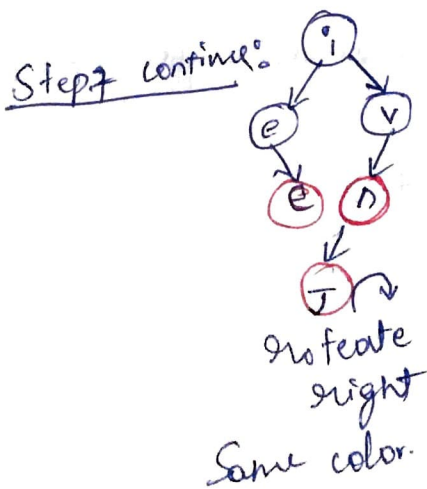 i
Step7 continue:
e
v
e
n
J
rofeate
right
Same color.